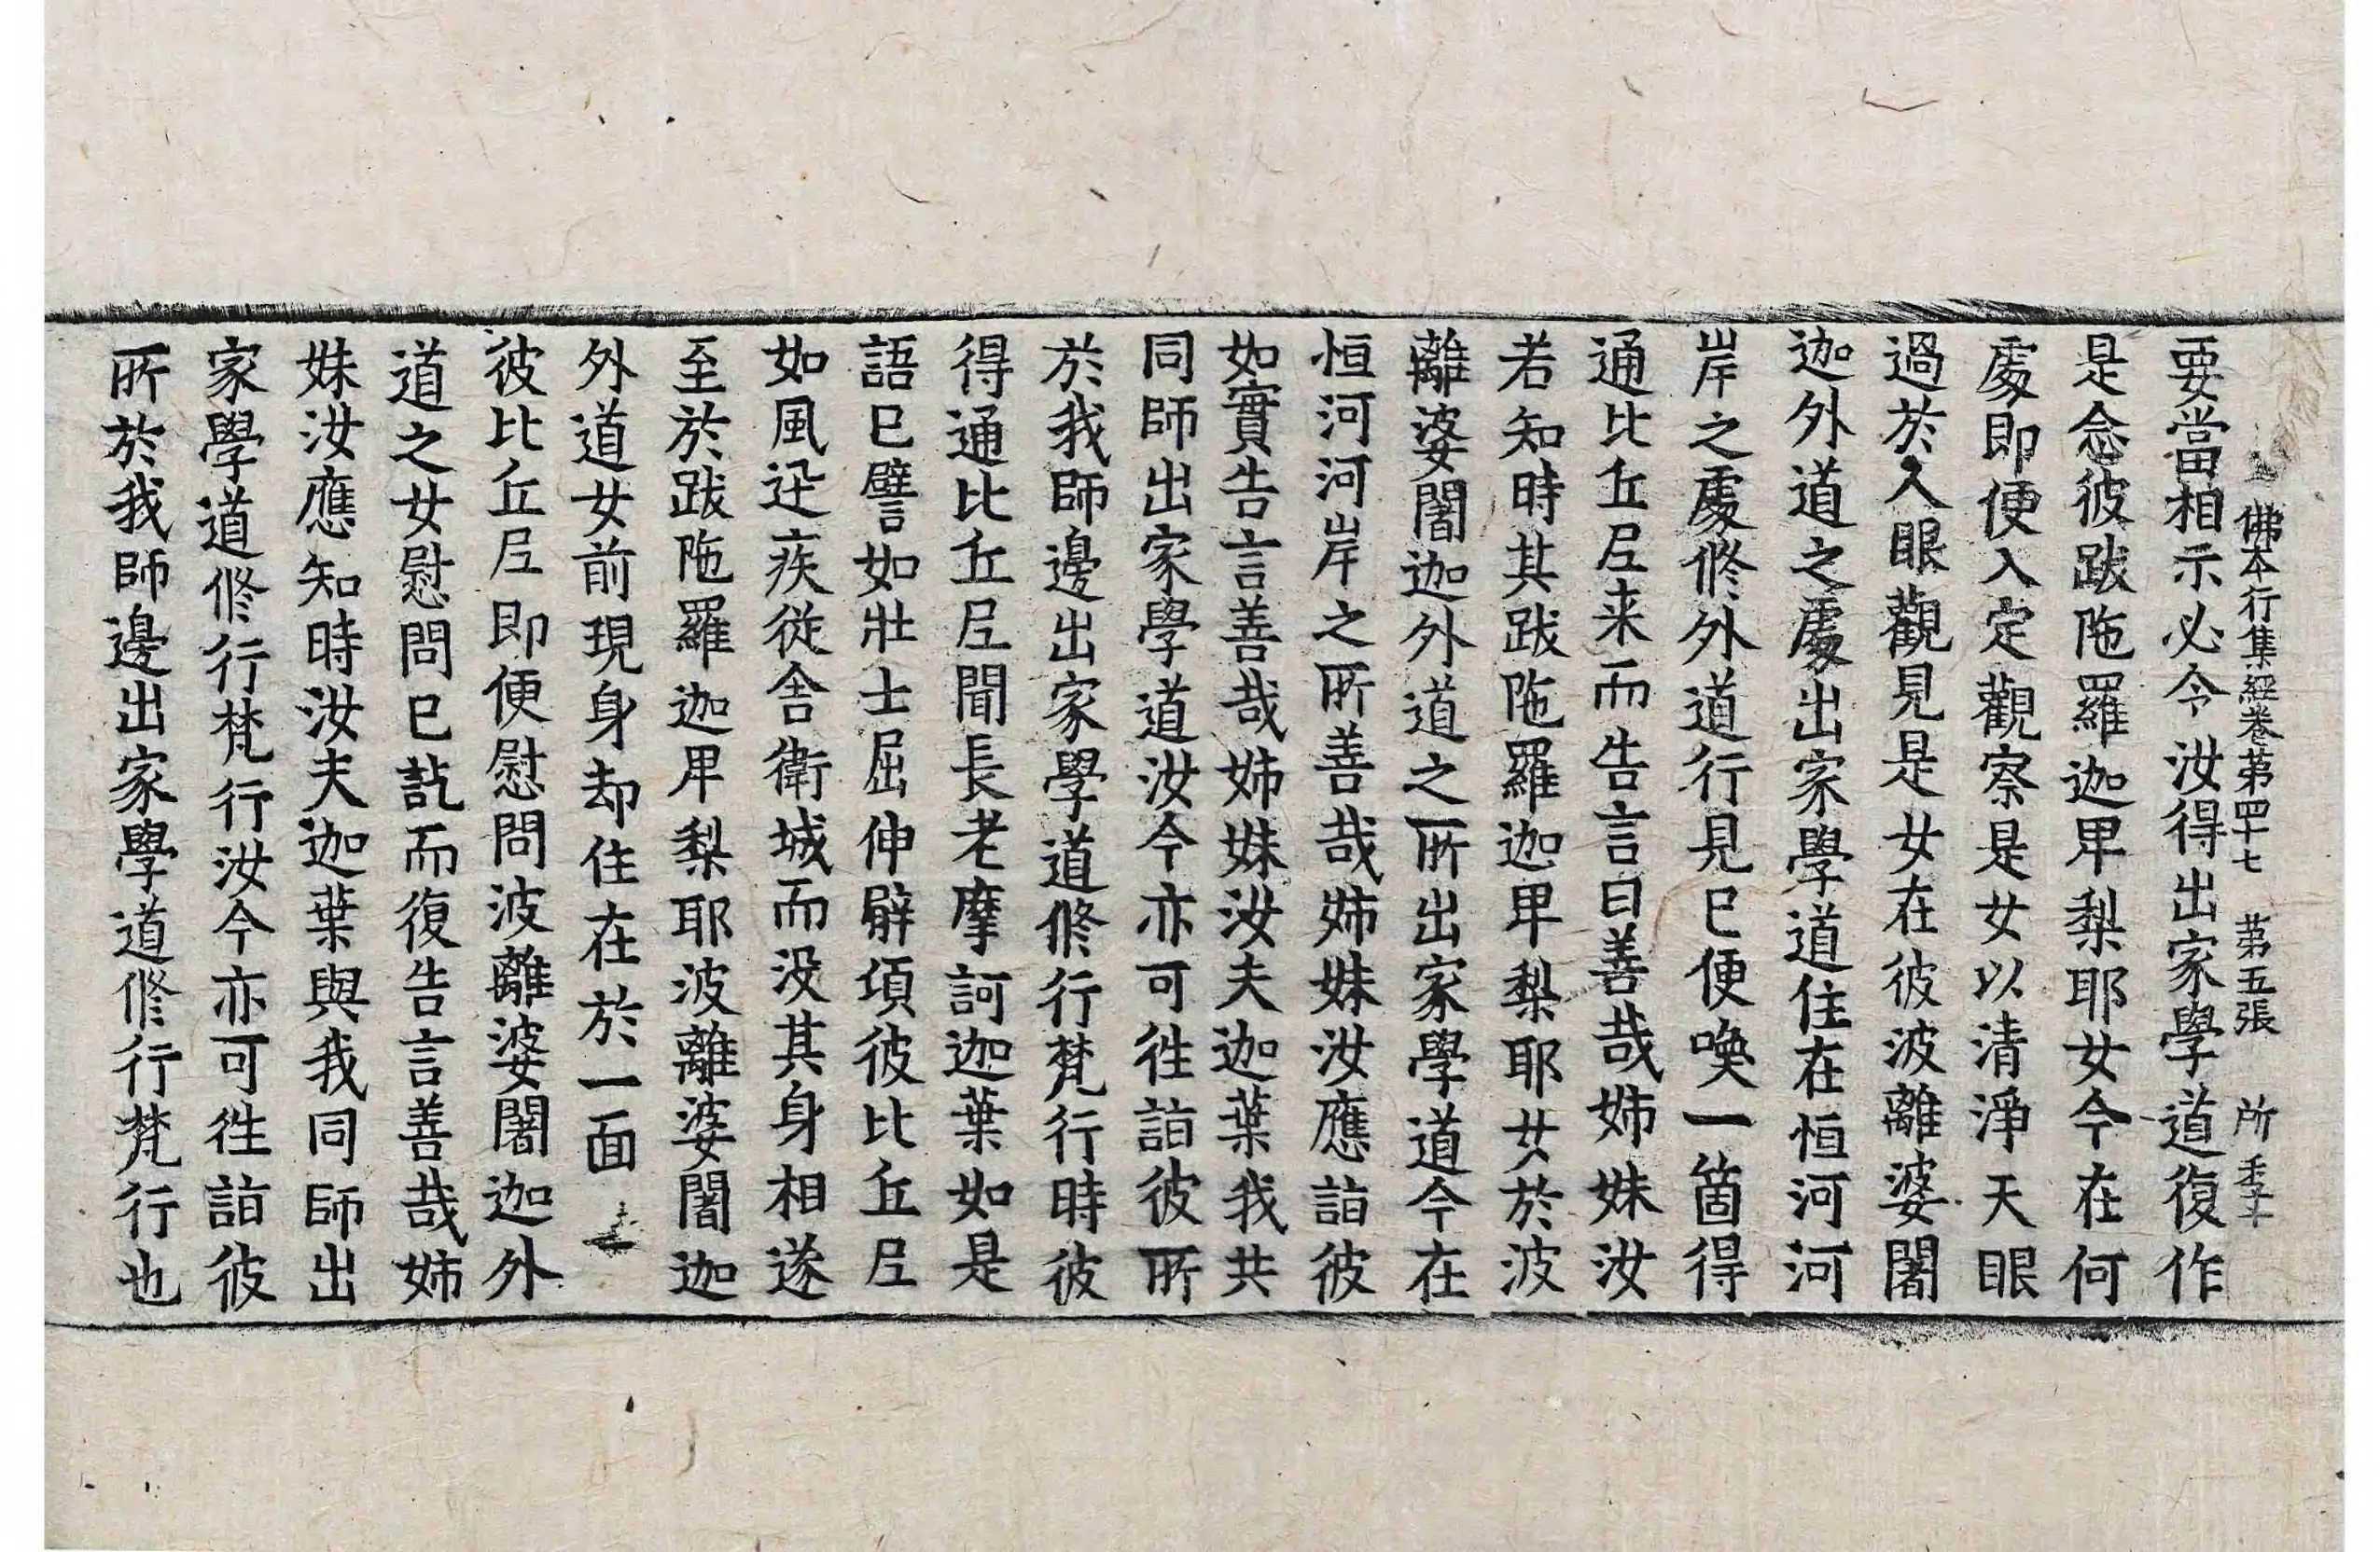 佛本行集經卷第四十七 第五張 所
要當相示必令汝得出家學道復作
是念彼跋陁羅迦卑梨耶女今在何
處即便入定觀察是女以清淨天眼
過於人眼觀見是女在彼波離婆闍
迦外道之處出家學道住在恒河河
岸之處修外道行見已便喚一箇得
通比丘尼来而告言曰善哉姉妹汝
若知時其跋陁羅迦卑梨耶女於波
離婆闍迦外道之所出家學道今在
恒河河岸之所善哉姉妹汝應詣彼
如實告言善哉姉妹汝夫迦葉我共
同師出家學道汝今亦可徃詣彼所
於我師邊出家學道修行梵行時彼
得通比丘尼聞長老摩訶迦葉如是
語已譬如壯士屈伸臂頃彼比丘尼
如風迅疾從舍衛城而没其身相遂
至於跋陁羅迦卑梨耶波離婆闍迦
外道女前現身却住在於一面
彼比丘尼即便慰問波離婆闍迦外
道之女慰問已訖而復告言善哉姉
妹汝應知時汝夫迦葉與我同師出
家學道修行梵行汝今亦可徃詣彼
所於我師邊出家學道修行梵行也